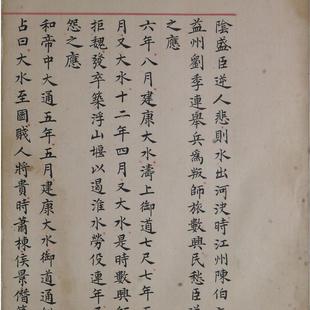 陰盛臣逆人悲則水出河決時江州陳伯
益州劉季連舉兵為叛師旅數興民愁臣逆
之應
六年八月建康大水濤上御道七尺七年五
月又大水十二年四月又大水是時數興師
拒魏發卒築浮山堰以遏淮水勞役連年
怨之應
和帝中大通五年五月建康大水御道通
占曰大水至國賤人將貴時蕭棟侯景僭